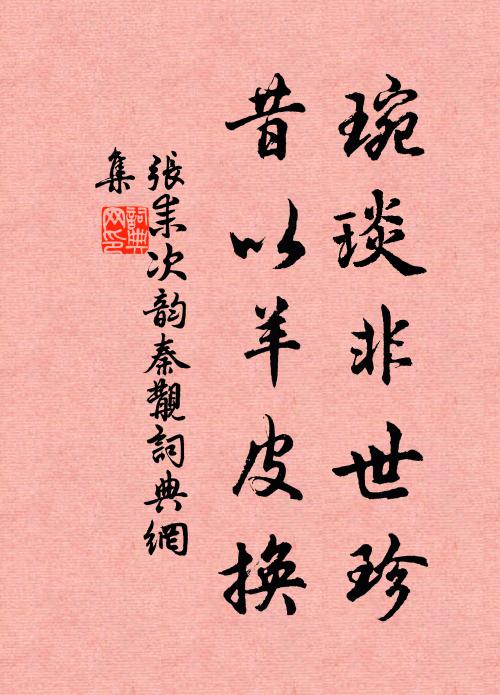 琬琰非世珍
昔以羊皮換
張耒次韵秦觀詞典網
集
詞典网印